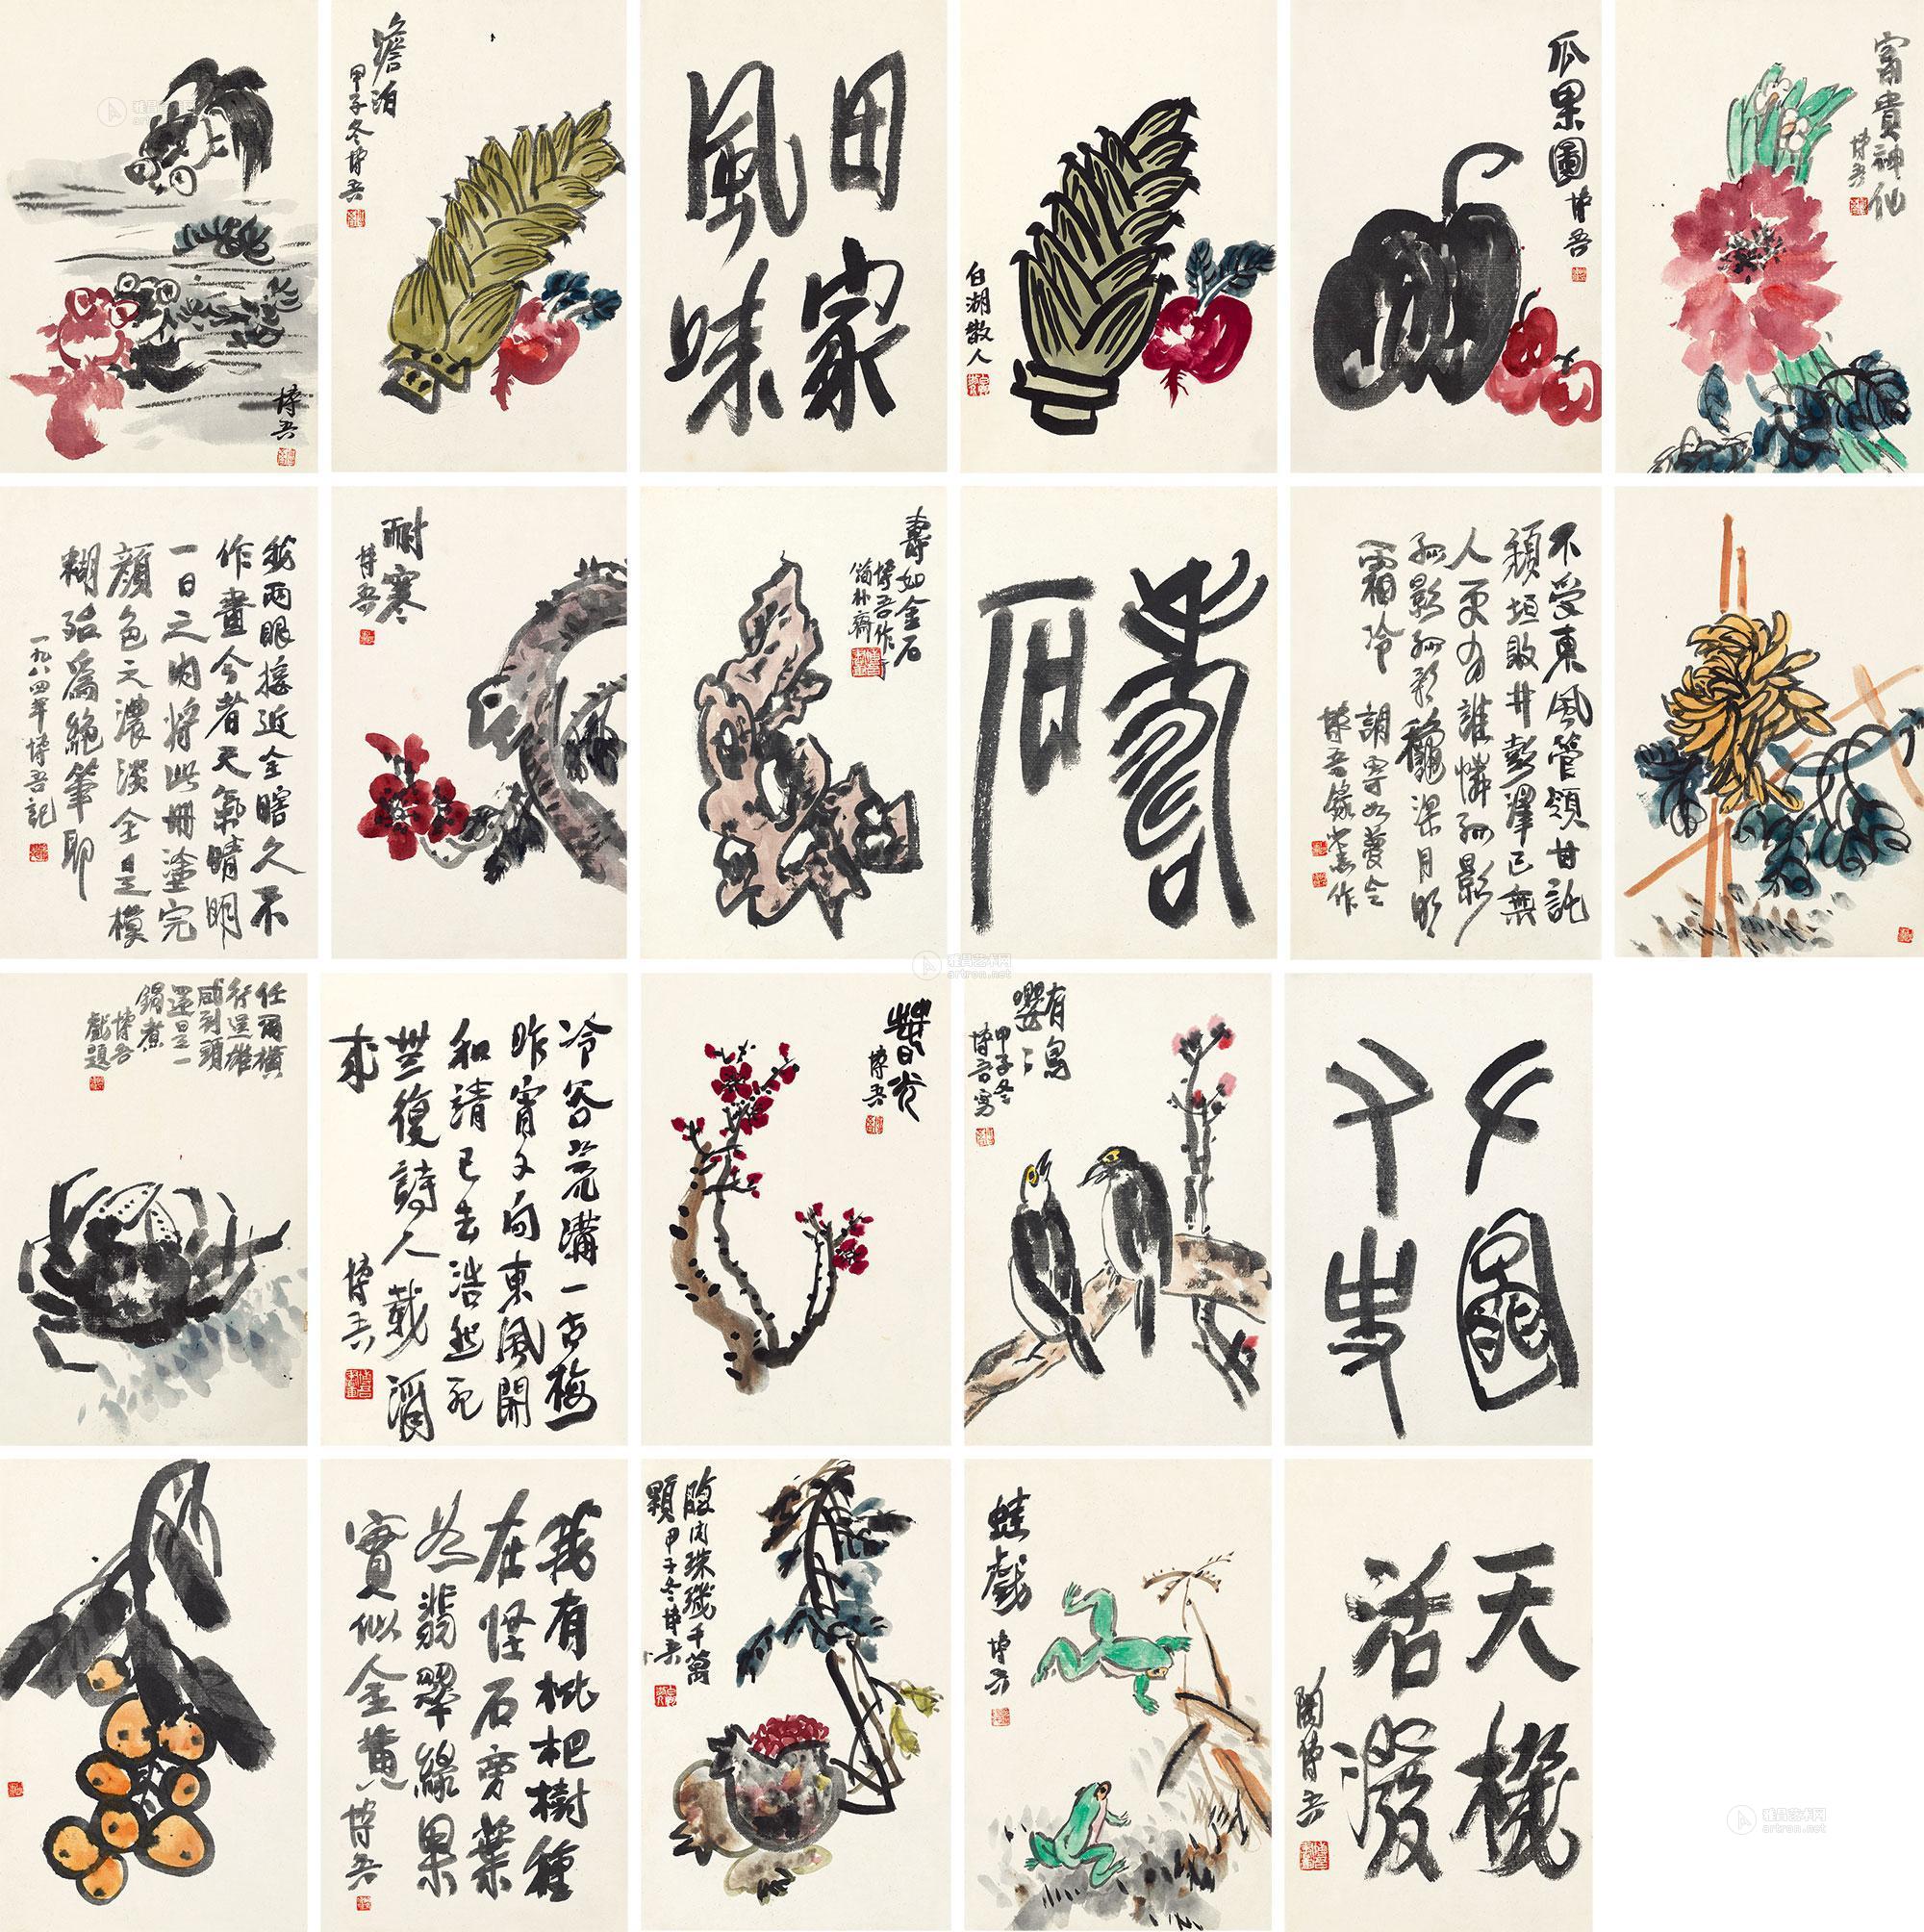 博吾
澹泊
甲子冬博吾
田家
風味
白湖散人
瓜果圖
博吾
富貴神仙
博吾
我兩眼接近全瞎久不
作畫今者天氣晴明
一日之內將此冊塗完
顏色之濃淡全是模
糊殆爲絕筆耶
一九八四年博吾記
耐寒
博吾
壽如金石
博吾作
簡朴齋
壽
石
不受東風管領甘託
頹垣敗井彭澤已無
人更有誰憐孤影
孤影孤影穐深月明
霜冷
調寄如夢令
博吾錄舊作
任爾橫
行逞雄
威到頭
還是一
鍋煮
博吾
戲題
冷谷荒溝一古梅
昨宵又向東風開
和靖已去浩然死
無復詩人載酒
來
博吾
春光
博吾
有鳥
嚶嚶
甲子冬
博吾寫
我有枇杷樹種
在怪石旁葉
如翡翠綠果
實似金黃
博吾
腹内珠璣千萬
顆甲子冬博吾
蛙戲
博吾
天機
活潑
闓博吾
雅昌艺术网
artron.net